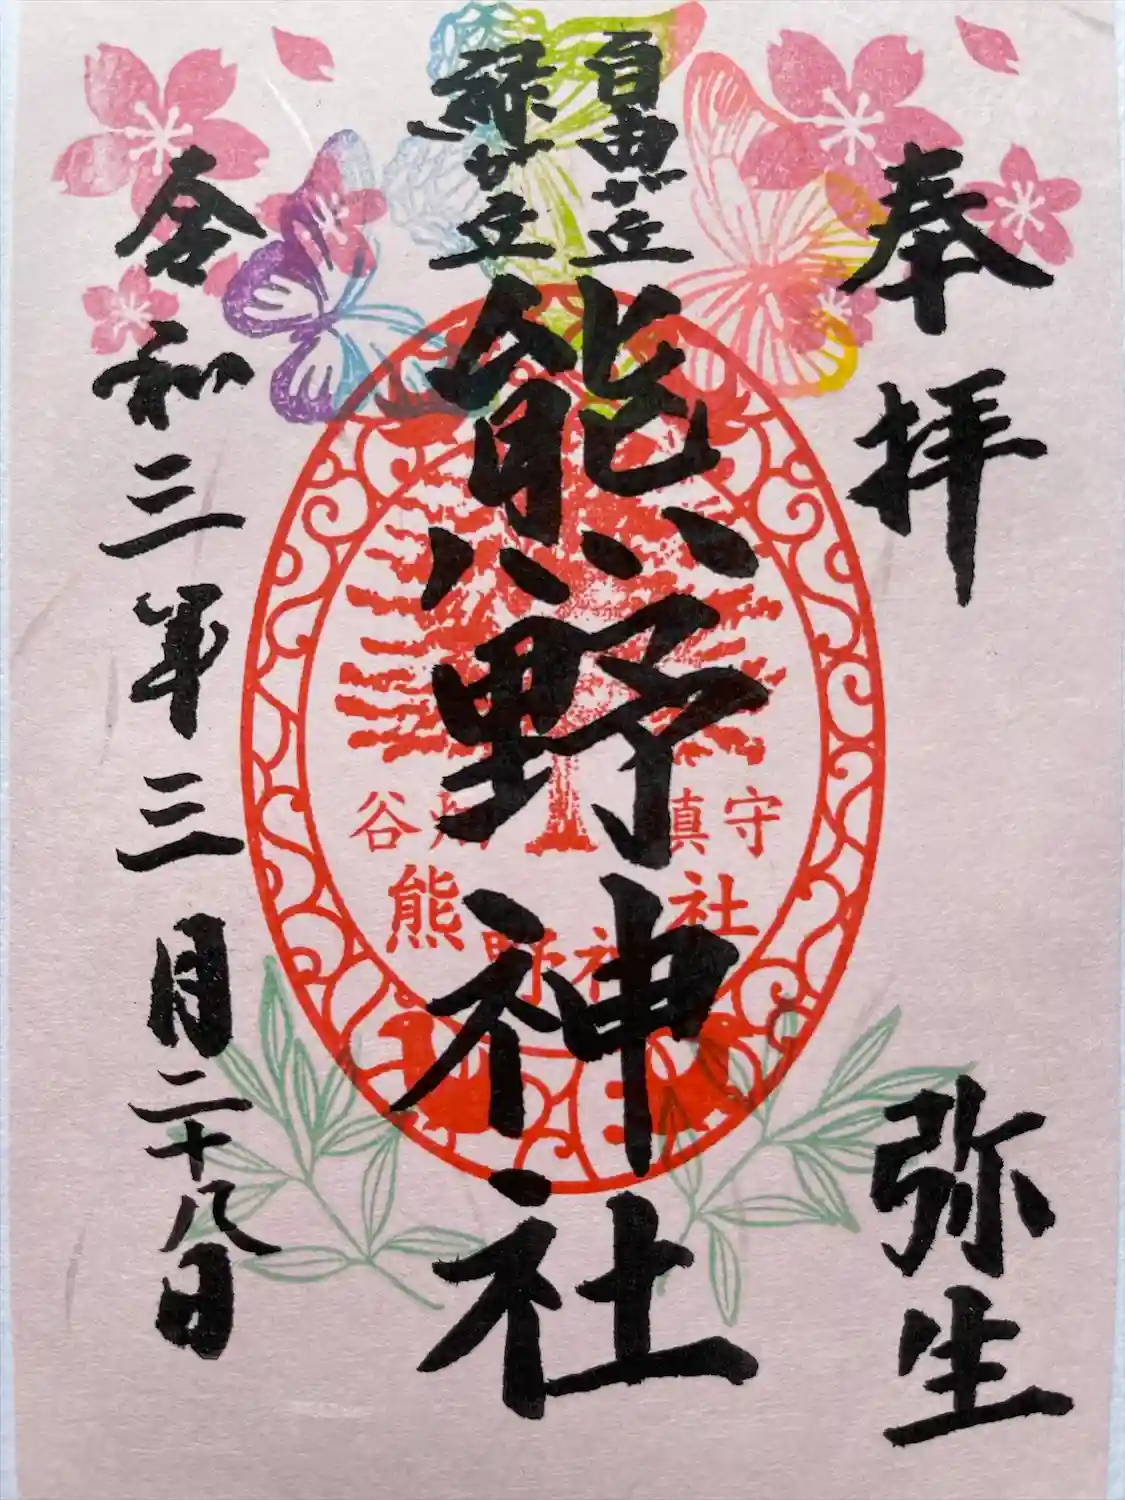 奉拝
弥生
自由が丘
緑が丘
熊野神社
鎮守
谷
熊野神社
令和三年三月二十八日